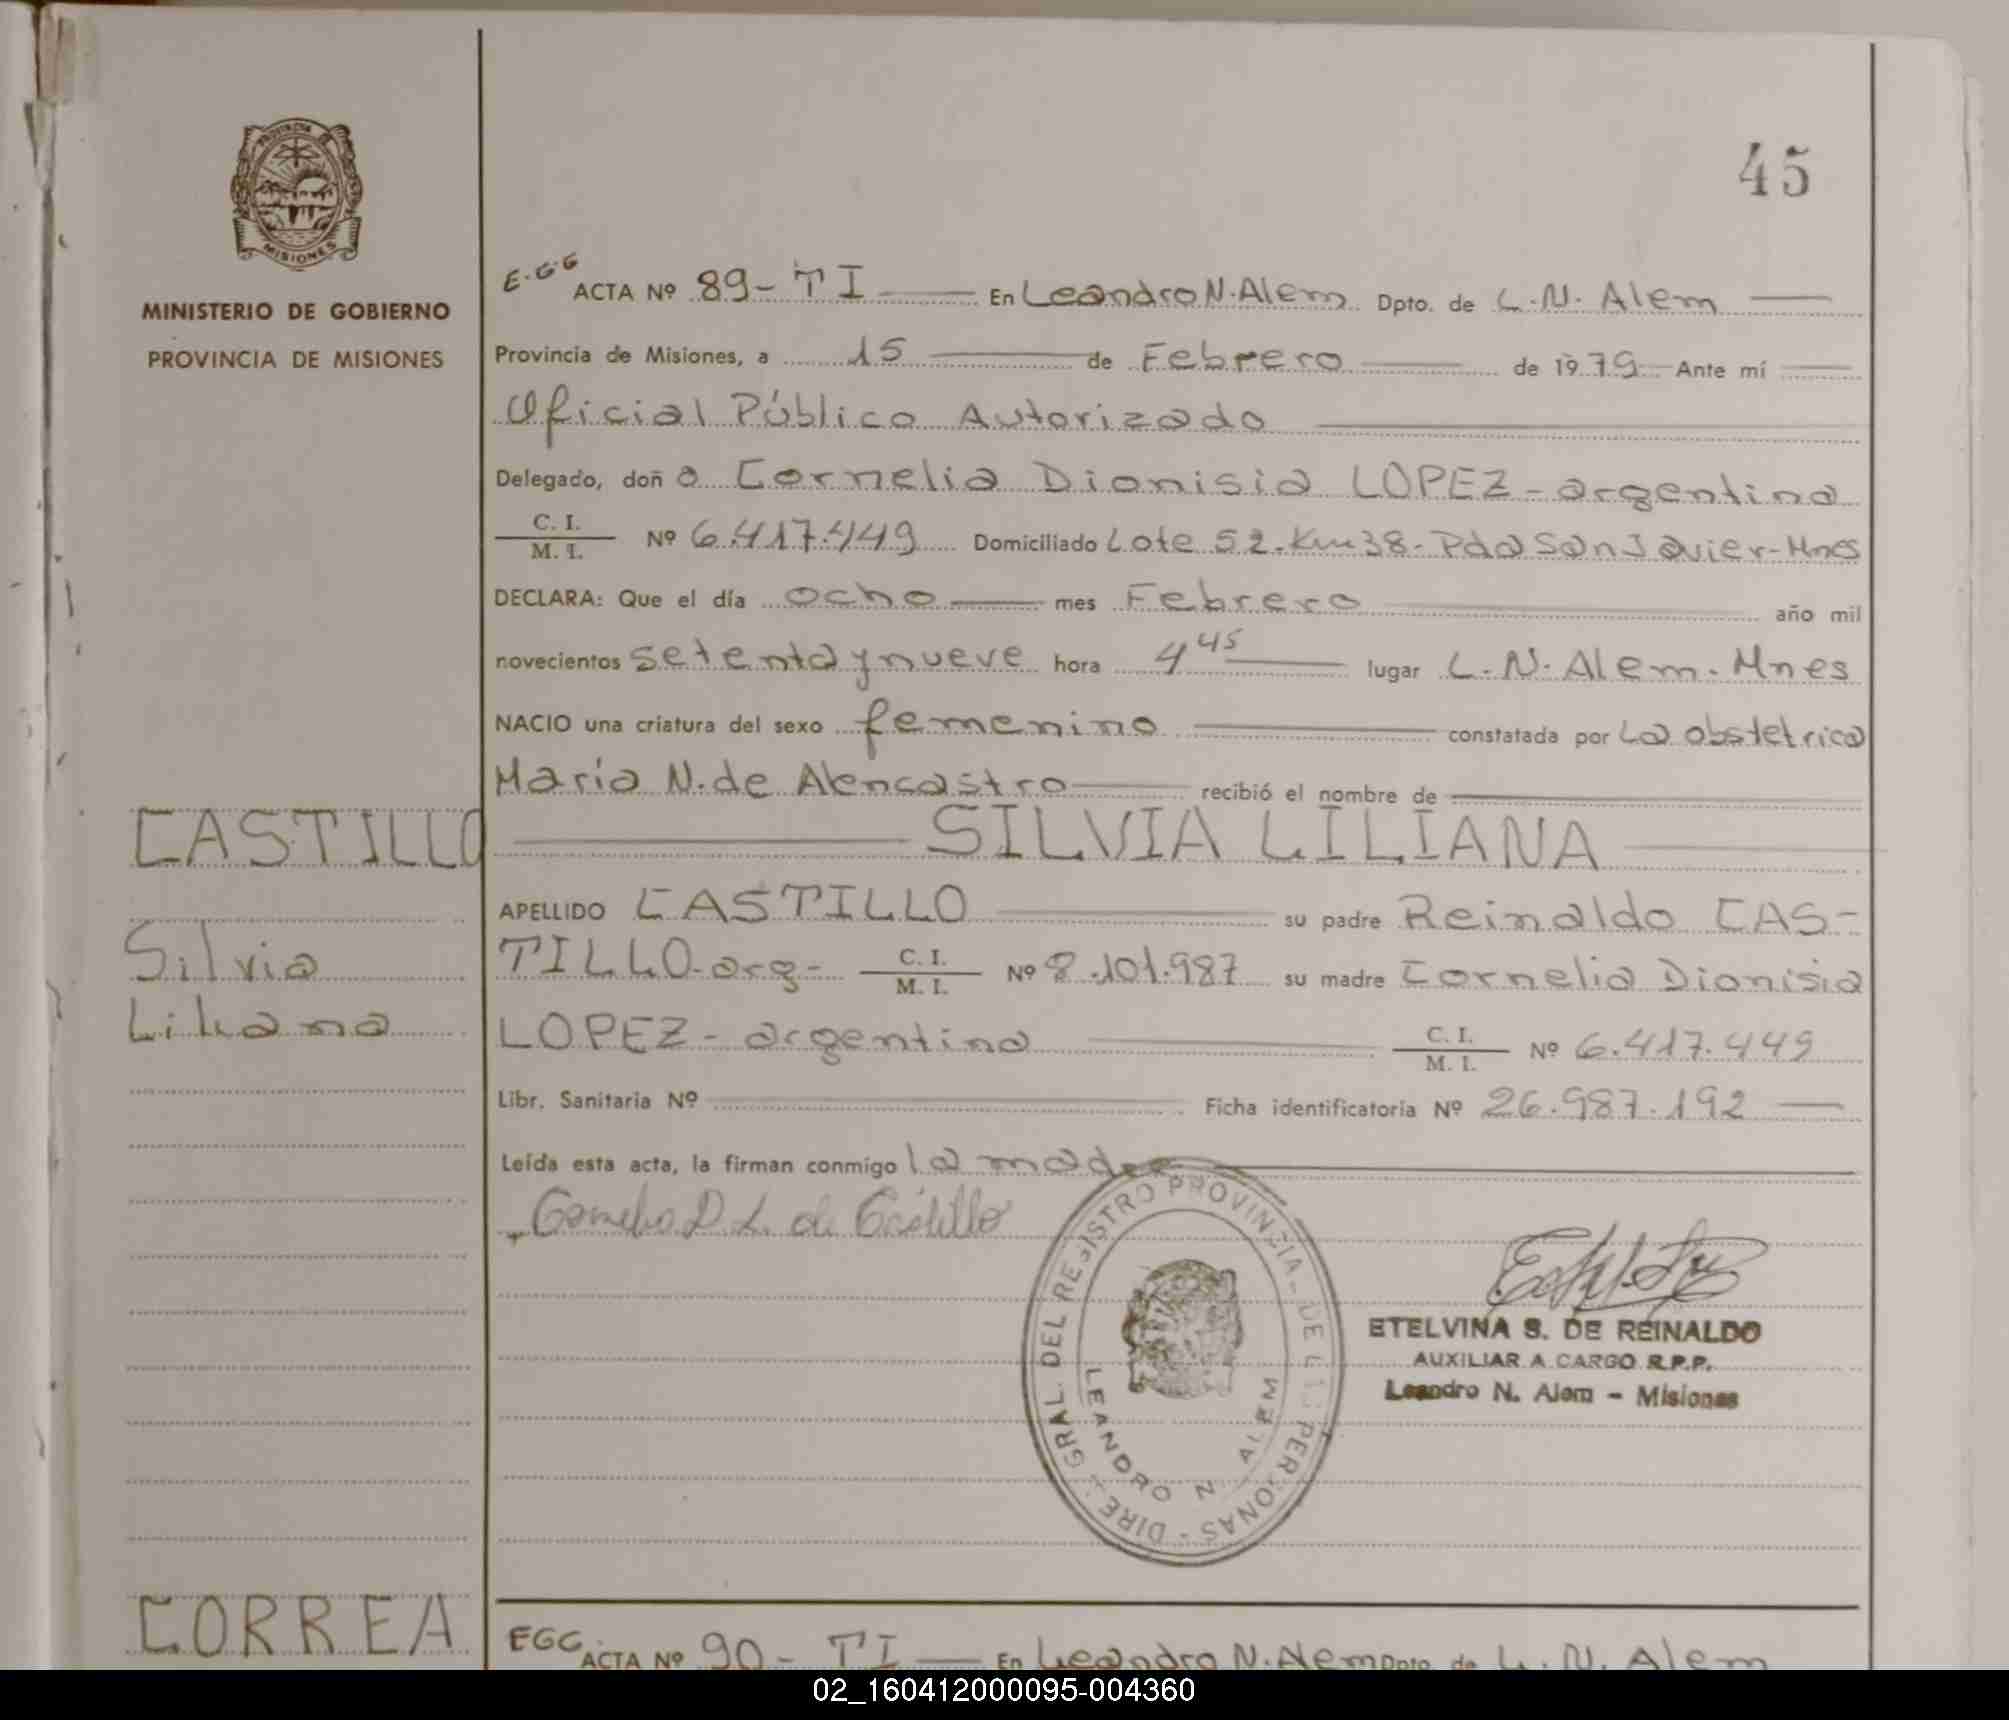 45
PROVINCIA DE
MISIONES
MINISTERIO DE GOBIERNO
PROVINCIA DE MISIONES
E.G.G ACTA Nº 89- TI — En Leandro N. Alem Dpto. de L.N. Alem —
Provincia de Misiones, a 15 — de Febrero — de 1979 — Ante mí —
Oficial Público Autorizado —
Delegado, doña Cornelia Dionisia LOPEZ - argentina
C. I. / M. I. Nº 6.417.449 Domiciliado Lote 52. Km 38- Pda San Javier - Mnes
DECLARA: Que el día ocho — mes Febrero — año mil
novecientos setenta y nueve hora 4 45 — lugar L.N. Alem. Mnes
NACIO una criatura del sexo femenino — constatada por La obstetrica
Maria N. de Alencastro — recibió el nombre de —
CASTILLO
— SILVIA LILIANA —
APELLIDO CASTILLO — su padre Reinaldo CAS-
Silvia
TILLO - arg - C. I. / M. I. Nº 8.101.987 su madre Cornelia Dionisia
Liliana
LOPEZ - argentina — C. I. / M. I. Nº 6.417.449
Libr. Sanitaria Nº — Ficha identificatoria Nº 26.987.192 —
Leída esta acta, la firman conmigo la madre —
Cornelia D. L. de Castillo
DIRE. GRAL. DEL REGISTRO PROVINCIAL DE L PERSONAS
LEANDRO N. ALEM
ETELVINA S. DE REINALDO
AUXILIAR A CARGO R.P.P.
Leandro N. Alem - Misiones
CORREA
EGG. ACTA Nº 90- TI — En Leandro N. Alem Dpto. de L.N. Alem
02_160412000095-004360